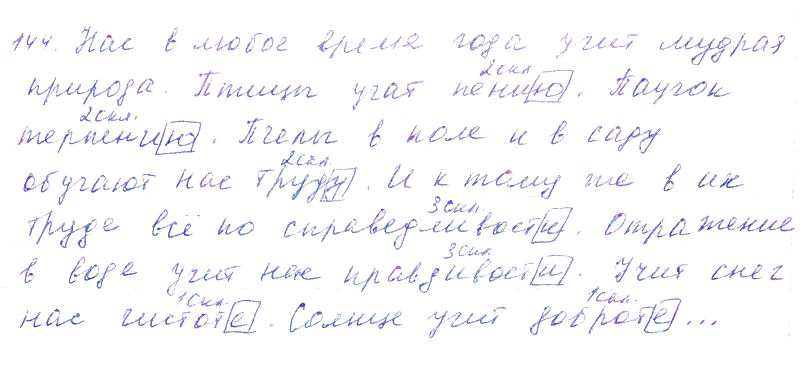 144. Нас в любое время года учит мудрая
2скл
природа. Птицы учат пению. Паучок
2скл.
терпению. Пчелы в поле и в саду
2скл
обучают нас труду. И к тому же в их
3скл.
труде всё по справедливости. Отражение
3скл
в воде учит нас правдивости. Учит снег
1скл. 1скл.
нас чистоте. Солнце учит доброте...